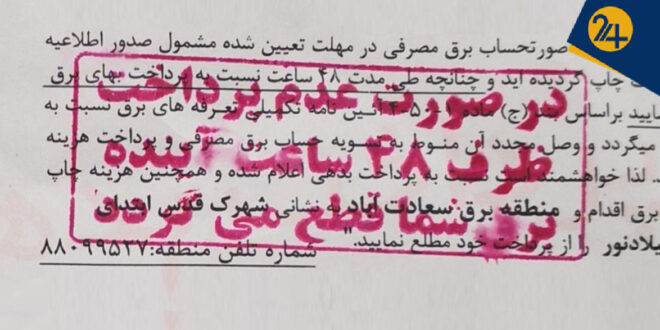 24
صورتحساب برق مصرفی در مهلت تعیین شده مشمول صدور اطلاعیه
چاپ گردیده اید و چنانچه طی مدت ۴۸ ساعت نسبت به پرداخت بهای برق
براساس بند (ج) ماده آئین نامه تکمیلی تعرفه های برق نسبت به
میگردد و وصل مجدد آن منوط به تسویه حساب برق مصرفی و پرداخت هزینه
لذا خواهشمند است نسبت به پرداخت بدهی اعلام شده و همچنین هزینه چاپ
برق اقدام و منطقه برق سعادت آباد به نشانی شهرک قدس ابتدای
یلادنور را از پرداخت خود مطلع نمایید."
شماره تلفن منطقه: ۸۸۰۹۹۵۲۷
در صورت عدم پرداخت
ظرف ۴۸ ساعت آینده
برق شما قطع می گردد